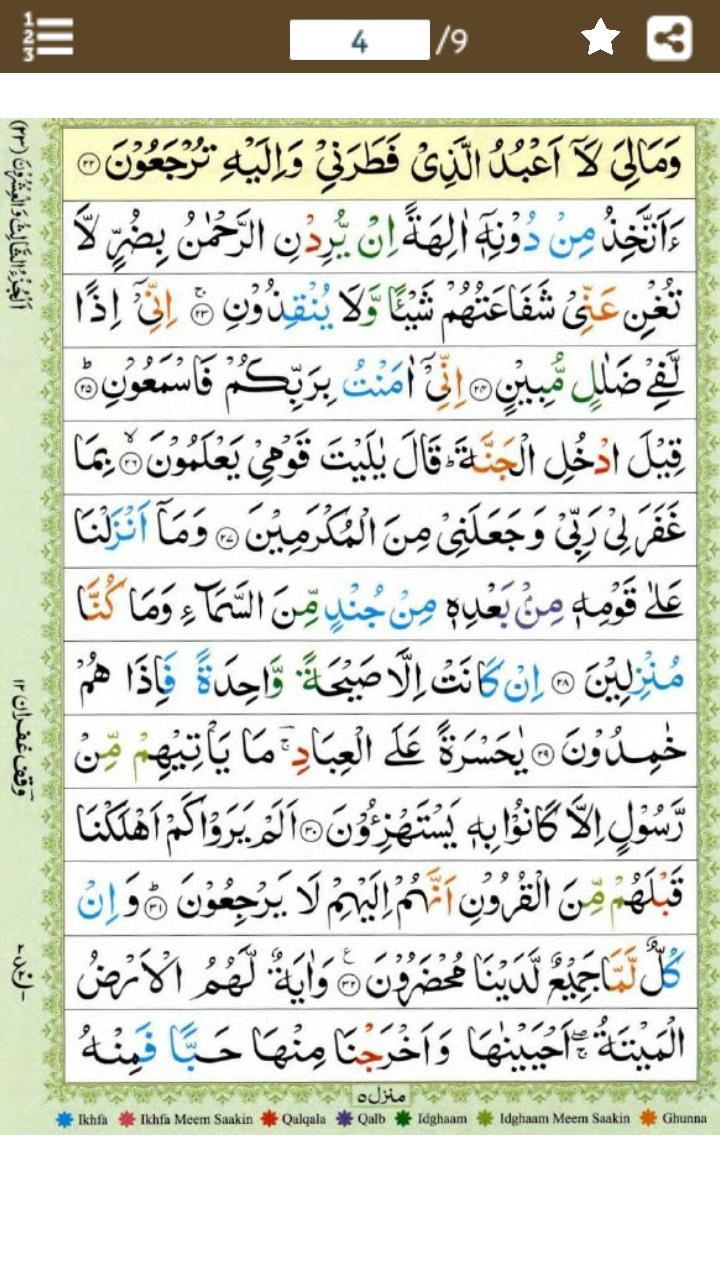 1
2
3
4 /9
اَلْجُزْءُ الثَّالِثُ وَالْعِشْرُوْنَ (۲۳)
وَمَالِيَ لَاۤ اَعْبُدُ الَّذِیْ فَطَرَنِیْ وَاِلَیْهِ تُرْجَعُوْنَ ۲۲
ءَاَتَّخِذُ مِنْ دُوْنِهٖۤ اٰلِهَةً اِنْ یُّرِدْنِ الرَّحْمٰنُ بِضُرٍّ لَّا
تُغْنِ عَنِّیْ شَفَاعَتُهُمْ شَیْـًٔا وَّلَا یُنْقِذُوْنِ ۚ ۲۳ اِنِّیْۤ اِذًا
لَّفِیْ ضَلٰلٍ مُّبِیْنٍ ۲۴ اِنِّیْۤ اٰمَنْتُ بِرَبِّكُمْ فَاسْمَعُوْنِ ؕ ۲۵
قِیْلَ ادْخُلِ الْجَنَّةَ ؕ قَالَ یٰلَیْتَ قَوْمِیْ یَعْلَمُوْنَ ۙ ۲۶ بِمَا
غَفَرَ لِیْ رَبِّیْ وَجَعَلَنِیْ مِنَ الْمُكْرَمِیْنَ ۲۷ وَمَاۤ اَنْزَلْنَا
عَلٰی قَوْمِهٖ مِنْۢ بَعْدِهٖ مِنْ جُنْدٍ مِّنَ السَّمَآءِ وَمَا كُنَّا
مُنْزِلِیْنَ ۲۸ اِنْ كَانَتْ اِلَّا صَیْحَةً وَّاحِدَةً فَاِذَا هُمْ
خٰمِدُوْنَ ۲۹ یٰحَسْرَةً عَلَی الْعِبَادِ ؔۚ مَا یَاْتِیْهِمْ مِّنْ
رَّسُوْلٍ اِلَّا كَانُوْا بِهٖ یَسْتَهْزِءُوْنَ ۳۰ اَلَمْ یَرَوْا كَمْ اَهْلَكْنَا
قَبْلَهُمْ مِّنَ الْقُرُوْنِ اَنَّهُمْ اِلَیْهِمْ لَا یَرْجِعُوْنَ ؕ ۳۱ وَاِنْ
كُلٌّ لَّمَّا جَمِیْعٌ لَّدَیْنَا مُحْضَرُوْنَ ۳۲ ع وَاٰیَةٌ لَّهُمُ الْاَرْضُ
الْمَیْتَةُ ۖۚ اَحْیَیْنٰهَا وَاَخْرَجْنَا مِنْهَا حَبًّا فَمِنْهُ
وقف غفران ۱۲
منزل ۵
Ikhfa Ikhfa Meem Saakin Qalqala Qalb Idghaam Idghaam Meem Saakin Ghunna